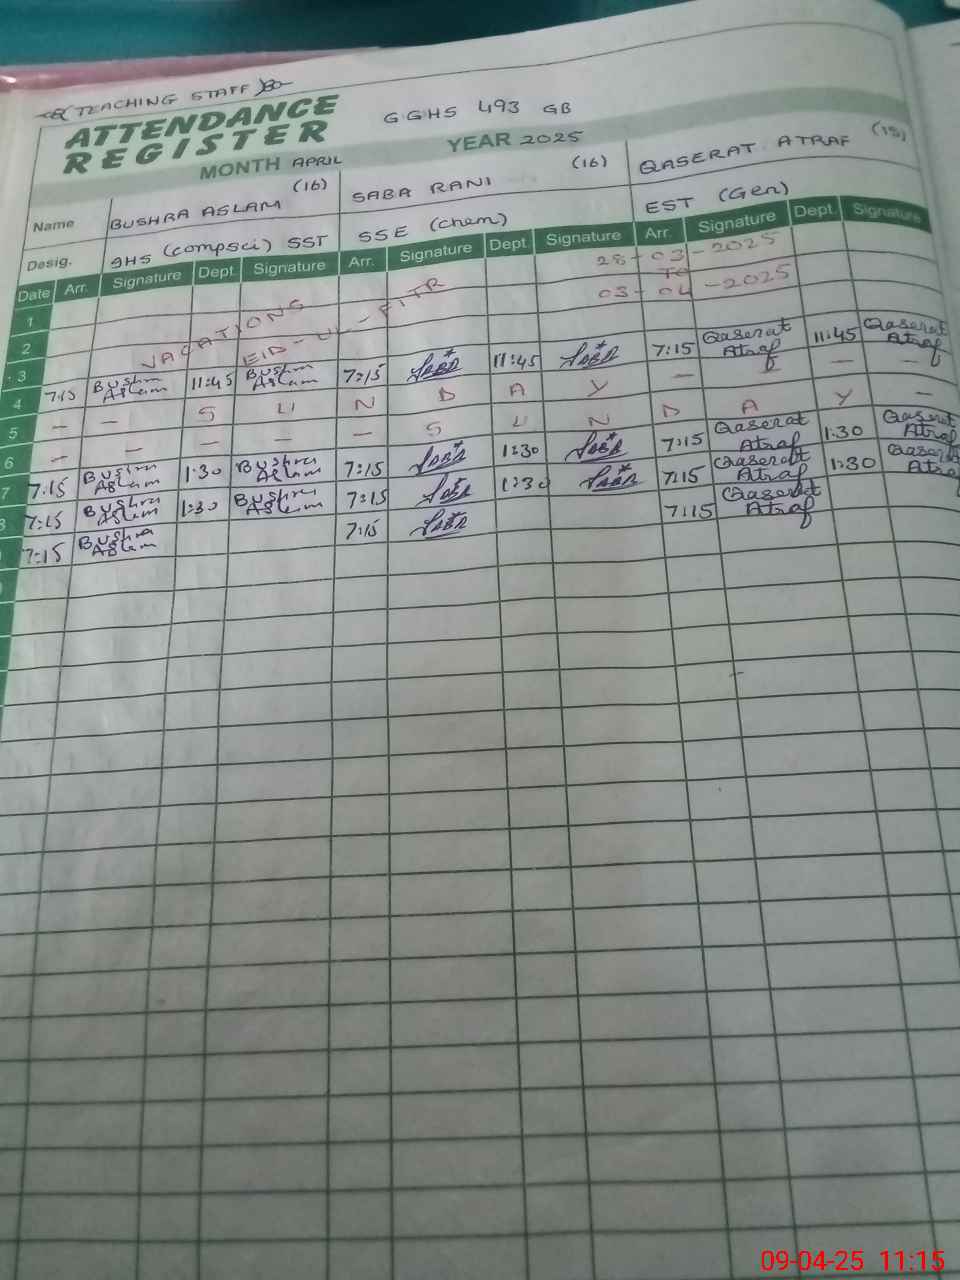 (TEACHING STAFF)
ATTENDANCE REGISTER
G.G.H.S 493 GB
MONTH APRIL YEAR 2025
(16) (16) (15)
Name BUSHRA ASLAM SABA RANI QASERAT ATRAF
Desig. (compsci) SST SSE (chem) EST (Gen)
Date Arr. Signature Dept. Signature Arr. Signature Dept. Signature Arr. Signature Dept. Signature
1 28-03-2025
TO
2 VACATIONS EID-UL-FITR 03-04-2025
3
4 7:15 Bushra Aslam 11:45 Bushra Aslam 7:15 Saba 11:45 Saba 7:15 Qaserat Atraf 11:45 Qaserat Atraf
5 - - S U N D A Y - - - -
6 - - - - - S U N D A Y -
7 7:15 Bushra Aslam 1:30 Bushra Aslam 7:15 Saba 1:30 Saba 7:15 Qaserat Atraf 1:30 Qaserat Atraf
8 7:15 Bushra Aslam 1:30 Bushra Aslam 7:15 Saba 1:30 Saba 7:15 Qaserat Atraf 1:30 Qaserat Atraf
7:15 Bushra Aslam 7:15 Saba 7:15 Qaserat Atraf
09-04-25 11:15